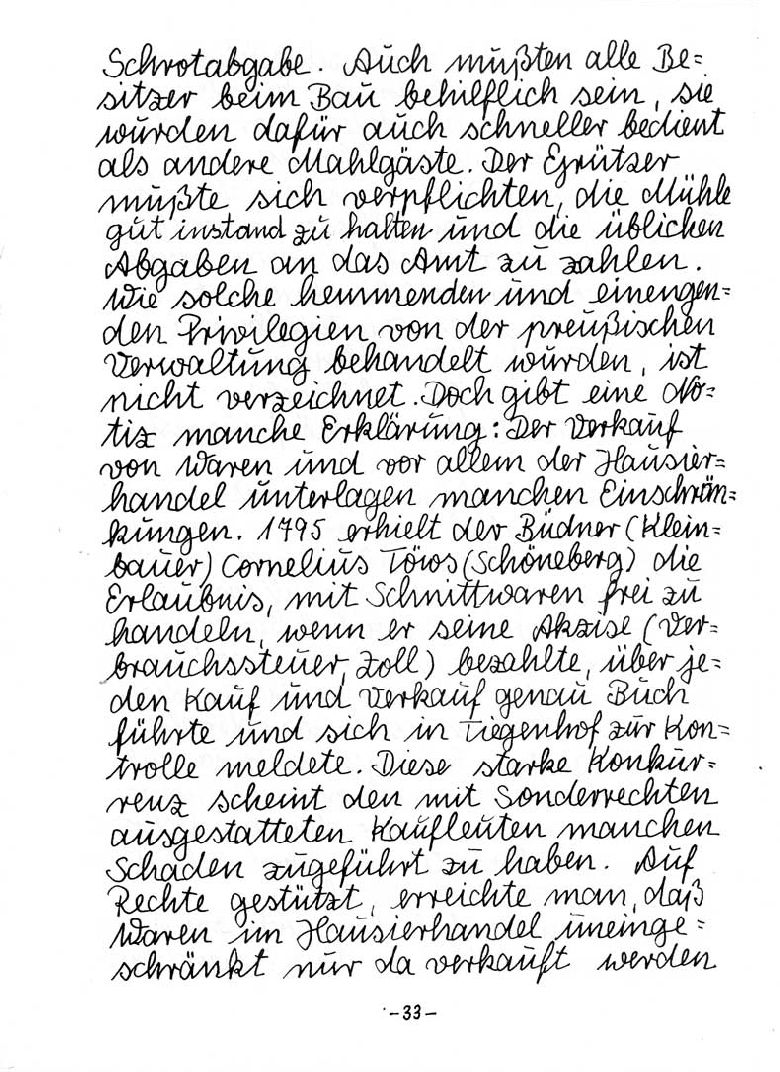 Schrotabgabe. Auch mußten alle Be=
sitzer beim Bau behilflich sein, sie
wurden dafür auch schneller bedient
als andere Mahlgäste. Der Grützer
mußte sich verpflichten, die Mühle
gut instand zu halten und die üblichen
Abgaben an das Amt zu zahlen.
Wie solche hemmenden und einengen=
den Privilegien von der preußischen
Verwaltung behandelt wurden, ist
nicht verzeichnet. Doch gibt eine No=
tiz manche Erklärung: Der Verkauf
von Waren und vor allem der Hausier=
handel unterlagen manchen Einschrän=
kungen. 1795 erhielt der Büdner (Klein=
bauer) Cornelius Töws (Schöneberg) die
Erlaubnis, mit Schnittwaren frei zu
handeln, wenn er seine Akzise (Ver=
brauchssteuer, Zoll) bezahlte, über je=
den Kauf und Verkauf genau Buch
führte und sich in Tiegenhof zur Kon=
trolle meldete. Diese starke Konkur=
renz scheint den mit Sonderrechten
ausgestatteten Kaufleuten manchen
Schaden zugeführt zu haben. Auf
Rechte gestützt, erreichte man, daß
Waren im Hausierhandel uneinge=
schränkt nur da verkauft werden
-33-